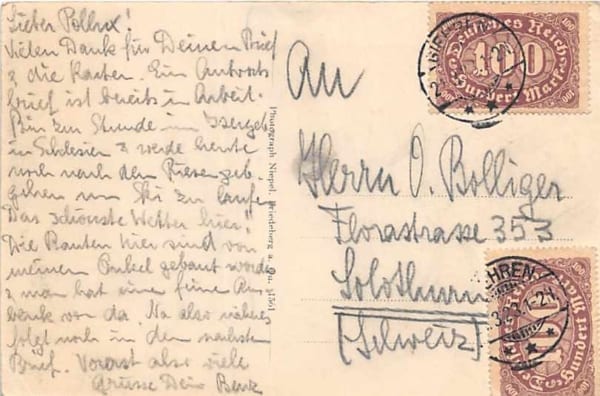 Lieber Pollux!
Vielen Dank für Deinen Brief
& die Karten. Ein Antwort-
brief ist bereits in Arbeit.
Bin zur Stunde im Isergeb.
in Schlesien & werde heute
noch nach dem Riesengeb.
gehen um Ski zu laufen.
Das schönste Wetter hier!
Die Bauten hier sind von
meinem Onkel gebaut worden
& man hat eine feine Aus-
von da. Na also näheres
folgt noch in dem nächsten
Brief. Vorerst also viele
Grüsse Dein
Photograph Niepel, Friedeberg a. Qu. 14561
An
Herrn O. Bolliger
Florastrasse 353
Solothurn
(Schweiz)
Deutsches Reich
100
Hundert Mark
100
Hundert Mark